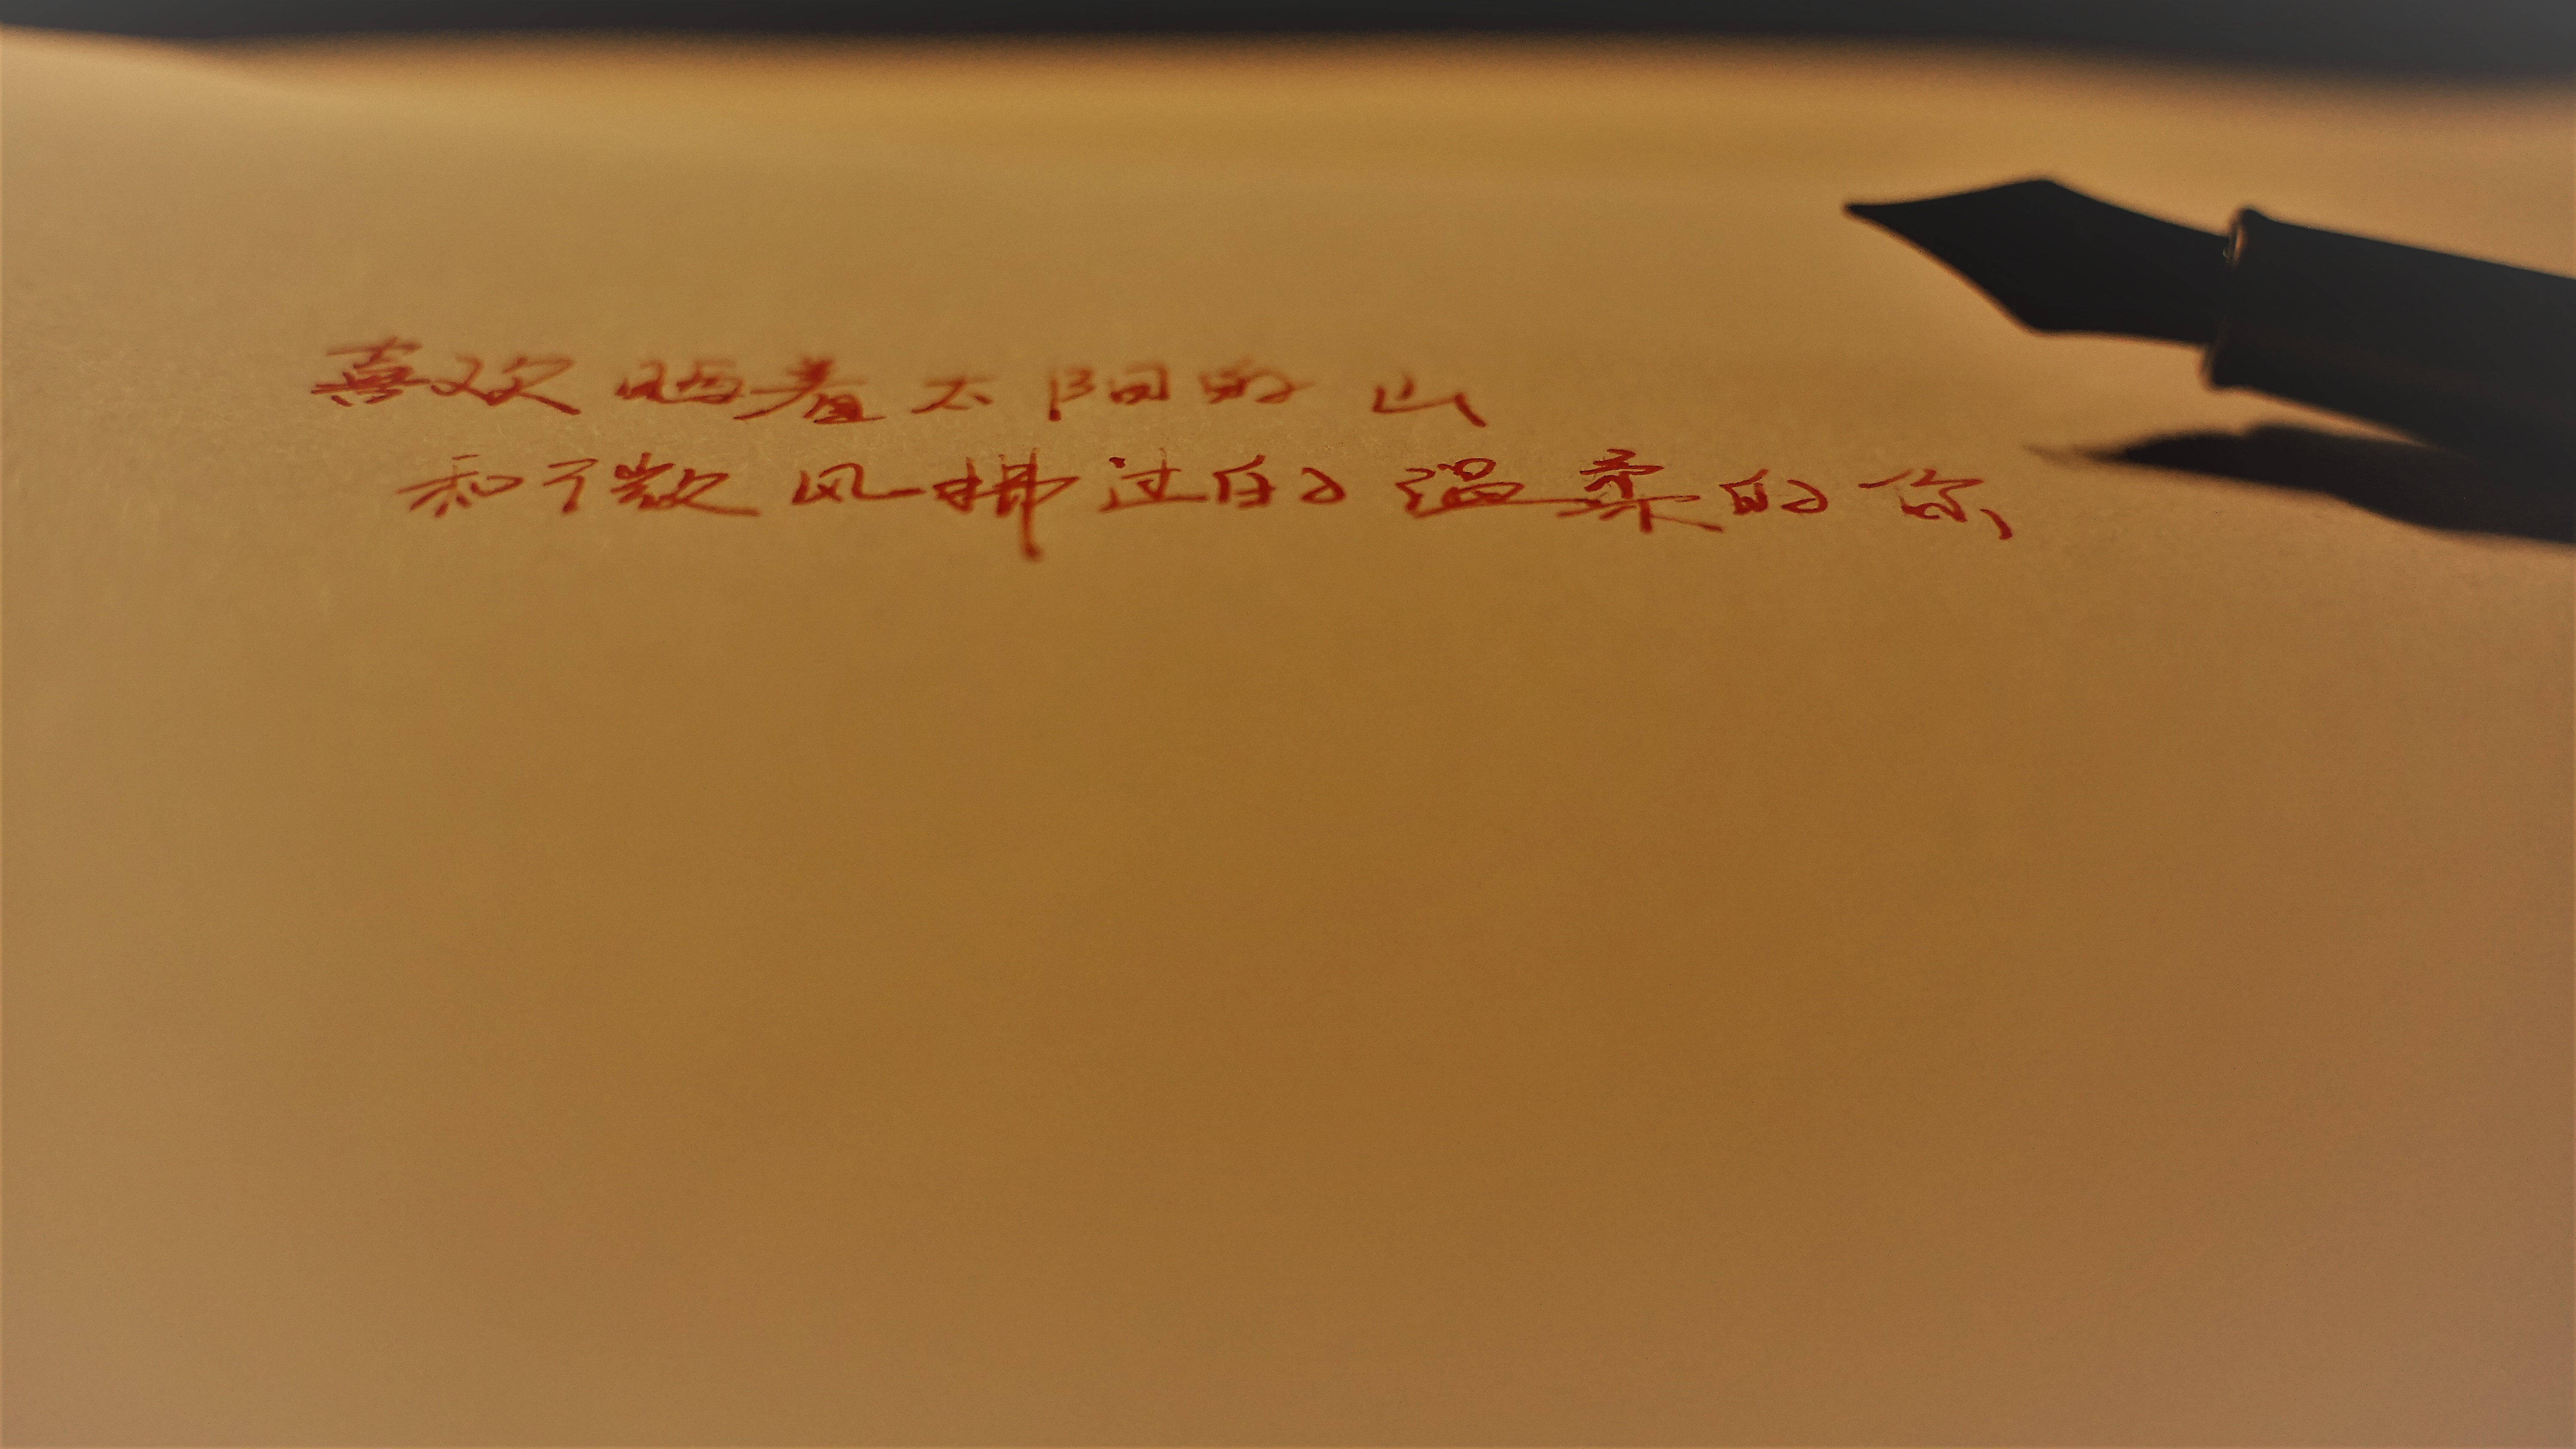 喜欢晒着太阳的山
和微风拂过的温柔的你